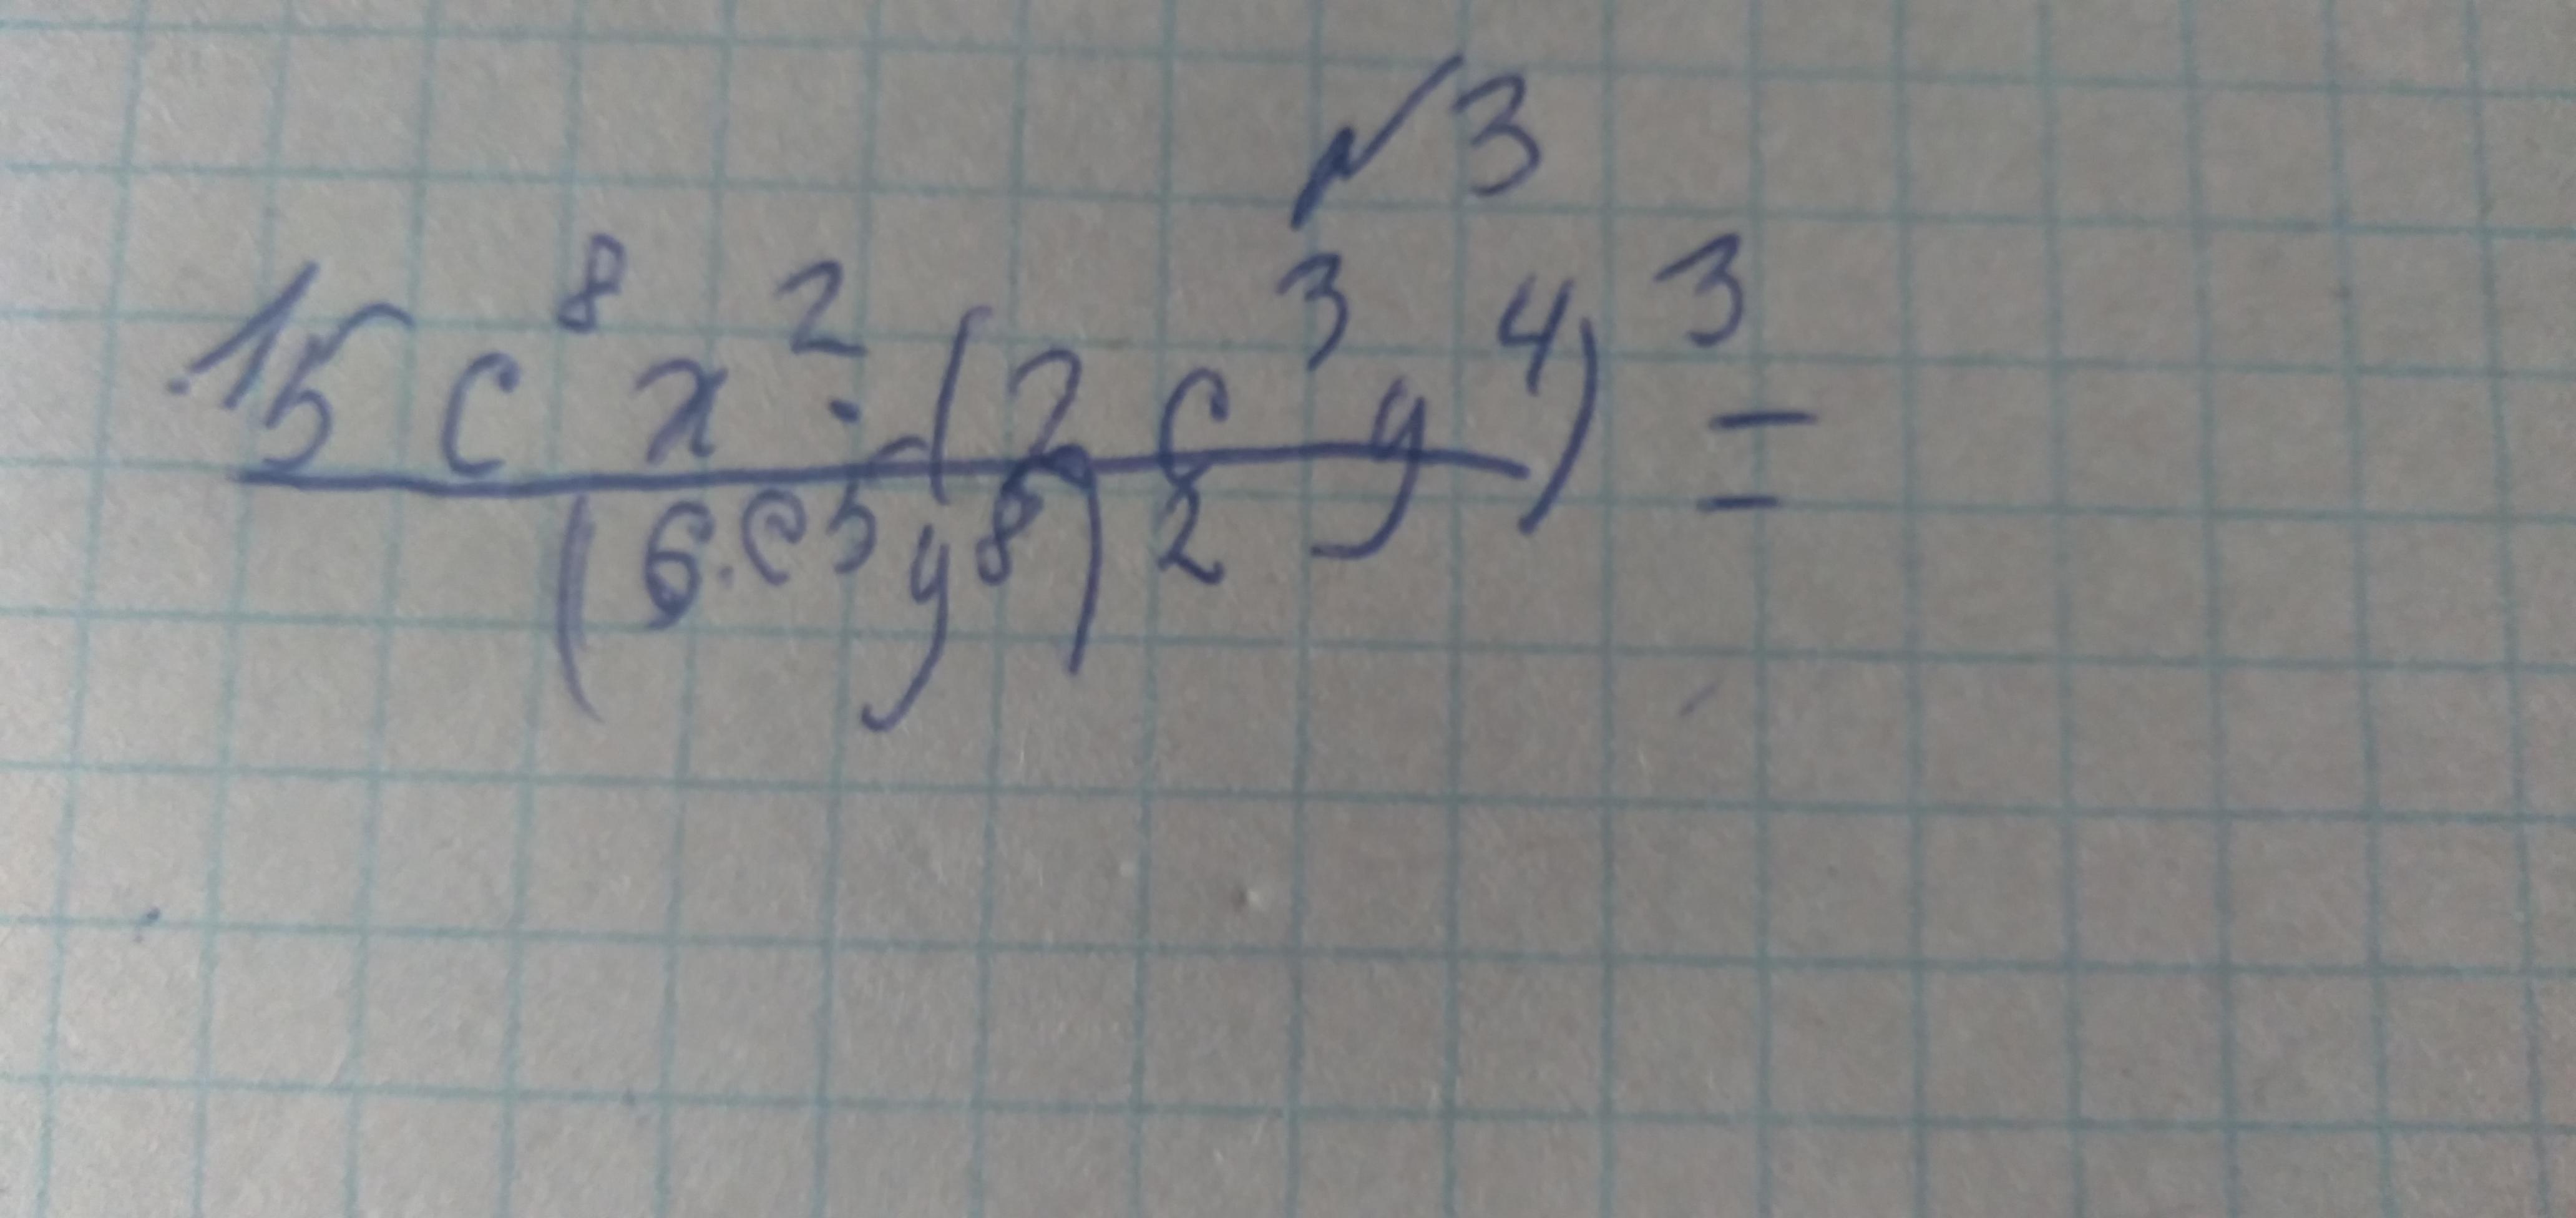 №3
15 c⁸ x² · (2 c³ y⁴)³ =
(6 · c⁵ y⁸)²